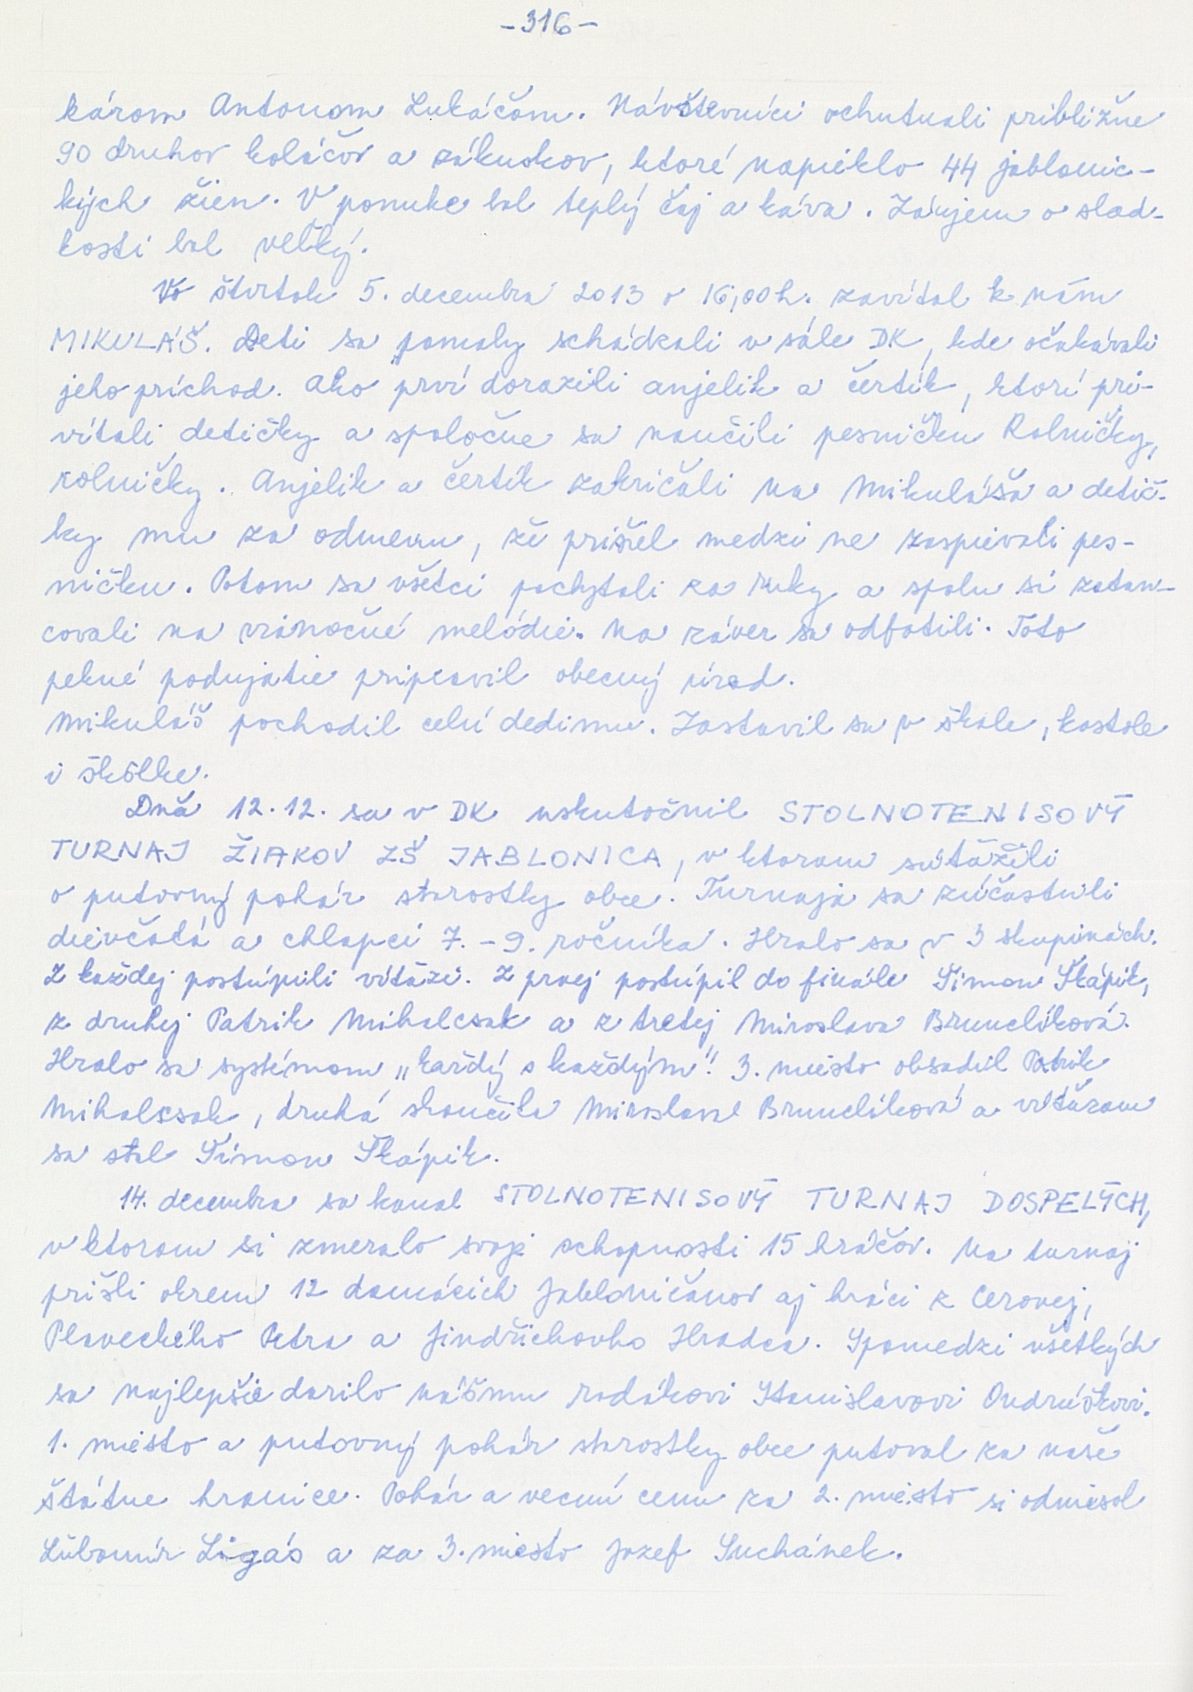 -316-
károm Antonom Lukáčom. Návštevníci ochutnali približne
90 druhov koláčov a zákuskov, ktoré napieklo 44 jablonic-
kých žien. V ponuke bol teplý čaj a káva. Záujem o slad-
kosti bol veľký.
Vo štvrtok 5. decembra 2013 o 16,00 h. zavítal k nám
MIKULÁŠ. Deti sa pomaly schádzali v sále DK, kde očakávali
jeho príchod. Ako prví dorazili anjelik a čertík, ktorí pri-
vítali detičky a spoločne sa naučili pesničku Rolničky,
rolničky. Anjelik a čertík zakričali na Mikuláša a detič-
ky mu za odmenu, že prišiel medzi ne zaspievali pes-
ničku. Potom sa všetci pochytali za ruky a spolu si zatan-
covali na vianočné melódie. Na záver sa odfotili. Toto
pekné podujatie pripravil obecný úrad.
Mikuláš pochodil celú dedinu. Zastavil sa v škole, kostole
i škôlke.
Dňa 12.12. sa v DK uskutočnil STOLNOTENISOVÝ
TURNAJ ŽIAKOV ZŠ JABLONICA, v ktorom súťažili
o putovný pohár starostky obce. Turnaja sa zúčastnili
dievčatá a chlapci 7.-9. ročníka. Hralo sa v 3 skupinách.
Z každej postúpili víťazi. Z prvej postúpil do finále Šimon Škápik,
z druhej Patrik Mihalcsak a z tretej Miroslava Brunclíková.
Hralo sa systémom „každý s každým". 3. miesto obsadil Patrik
Mihalcsak, druhá skončila Miroslava Brunclíková a víťazom
sa stal Šimon Škápik.
14. decembra sa konal STOLNOTENISOVÝ TURNAJ DOSPELÝCH,
v ktorom si zmeralo svoje schopnosti 15 hráčov. Na turnaj
prišli okrem 12 domácich Jabloničanov aj hráči z Cerovej,
Plaveckého Petra a Jindřichovho Hradca. Spomedzi všetkých
sa najlepšie darilo nášmu rodákovi Stanislavovi Ondrúškovi.
1. miesto a putovný pohár starostky obce putoval za naše
štátne hranice. Pohár a vecnú cenu za 2. miesto si odniesol
Ľubomír Ligás a za 3. miesto Jozef Suchánek.